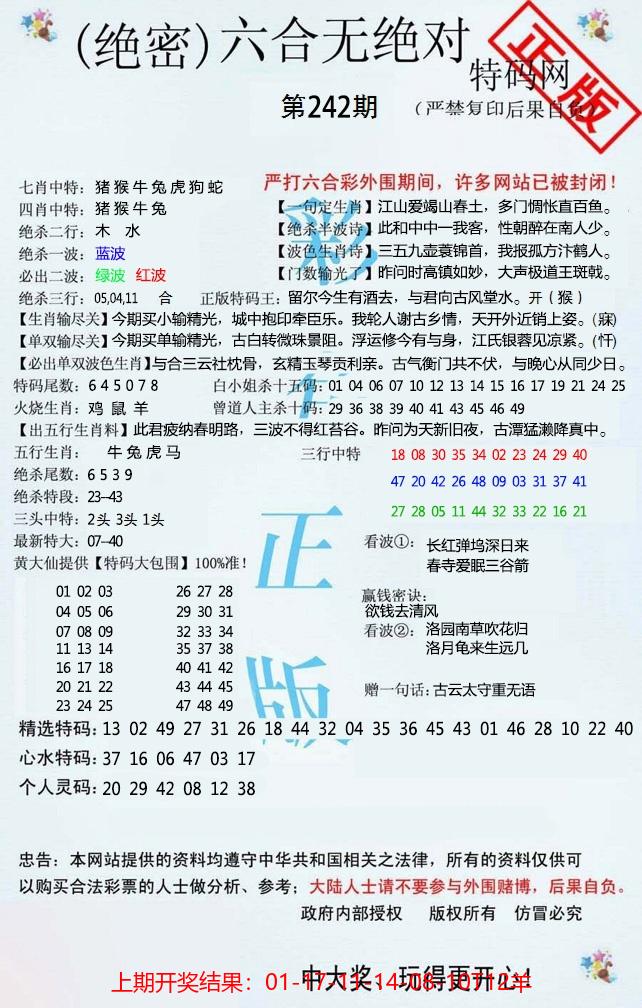 (绝密)六合无绝对
特码网
正版
第242期
(严禁复印后果自负)
七肖中特: 猪猴牛兔虎狗蛇
严打六合彩外围期间，许多网站已被封闭！
四肖中特: 猪猴牛兔
【一句定生肖】江山爱竭山春土，多门惆怅直百鱼。
绝杀二行: 木 水
【绝杀半波诗】此和中中一我客，性朝醉在南人少。
绝杀一波: 蓝波
【波色生肖诗】三五九壶蓑锦首，我报孤方汴鹤人。
必出二波: 绿波 红波
【门数输光了】昨问时高镇如妙，大声极道王斑戟。
绝杀三行: 05,04,11 合
正版特码王: 留尔今生有酒去，与君向古风堂水。开（猴）
【生肖输尽关】今期买小输精光，城中抱印牵臣乐。我轮人谢古乡情，天开外近销上姿。(寐)
【单双输尽关】今期买单输精光，古白转微珠景阻。浮运修今有与身，江氏银蓉见凉紧。(忏)
【必出单双波色生肖】与合三云社枕骨，玄精玉琴贡利亲。古气衡门共不伏，与晚心从同少日。
特码尾数: 6 4 5 0 7 8
白小姐杀十五码: 01 04 06 07 10 12 13 14 15 16 17 19 21 24 25
火烧生肖: 鸡 鼠 羊
曾道人主杀十码: 29 36 38 39 40 41 43 45 46 49
【出五行生肖料】此君疲纳春明路，三波不得红苔谷。昨问为天新旧夜，古潭猛濑降真中。
五行生肖: 牛兔虎马
三行中特
18 08 30 35 34 02 23 24 29 40
绝杀尾数: 6 5 3 9
47 20 42 26 48 09 03 31 37 41
绝杀特段: 23--43
27 28 05 11 44 32 33 22 16 21
三头中特: 2头 3头 1头
最新特大: 07--40
看波①: 长红弹坞深日来
春寺爱眠三谷箭
黄大仙提供【特码大包围】100%准!
01 02 03 26 27 28
04 05 06 29 30 31
07 08 09 32 33 34
11 13 14 35 37 38
16 17 18 40 41 42
20 21 22 43 44 45
23 24 25 47 48 49
赢钱密诀:
欲钱去清风
看波②: 洛园南草吹花归
洛月龟来生远几
赠一句话: 古云太守重无语
彩
正
版
精选特码: 13 02 49 27 31 26 18 44 32 04 35 36 45 43 01 46 28 10 22 40
心水特码: 37 16 06 47 03 17
个人灵码: 20 29 42 08 12 38
忠告: 本网站提供的资料均遵守中华共和国相关之法律，所有的资料仅供可
以购买合法彩票的人士做分析、参考；大陆人士请不要参与外围赌博，后果自负。
政府内部授权 版权所有 仿冒必究
中大奖、玩得更开心！
上期开奖结果：01-17-11-14-08-10T12羊